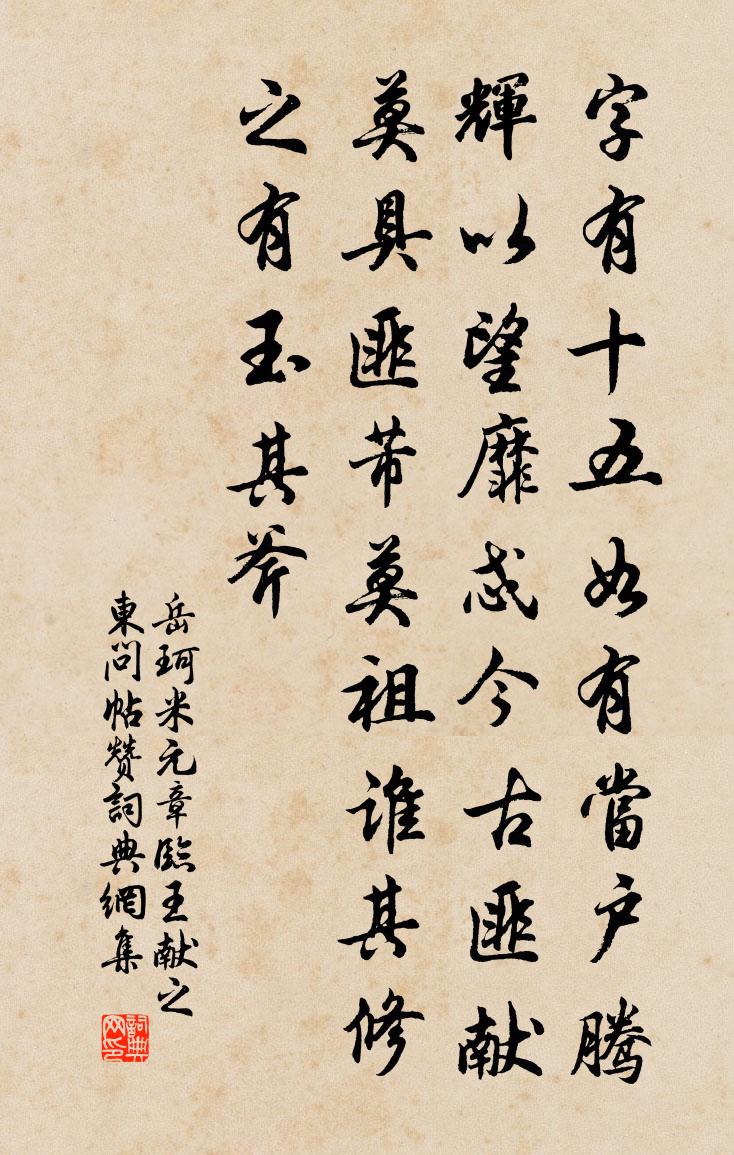 字有十五如有當户騰
輝以望靡忒今古匪献
莫具匪芾莫祖誰其修
之有玉其斧
岳珂米元章臨王献之
東問帖贊詞典網集
詞典
网印